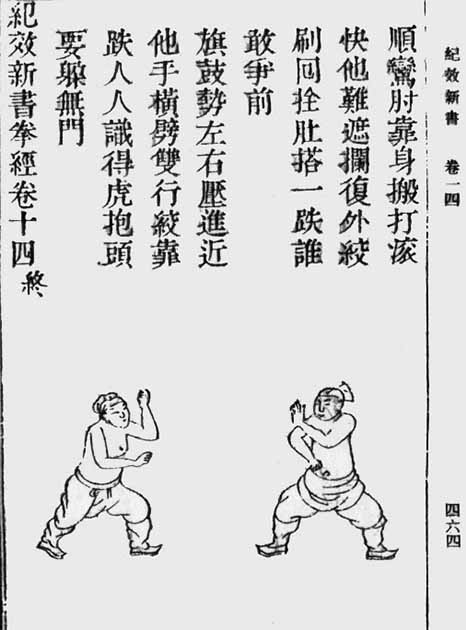 紀效新書 卷一四
四六四
順鸞肘靠身搬打滚
快他難遮攔復外絞
刷回拴肚搭一跌誰
敢爭前
旗鼓勢左右壓進近
他手橫劈雙行絞靠
跌人人識得虎抱頭
要躱無門
紀效新書拳經卷十四終